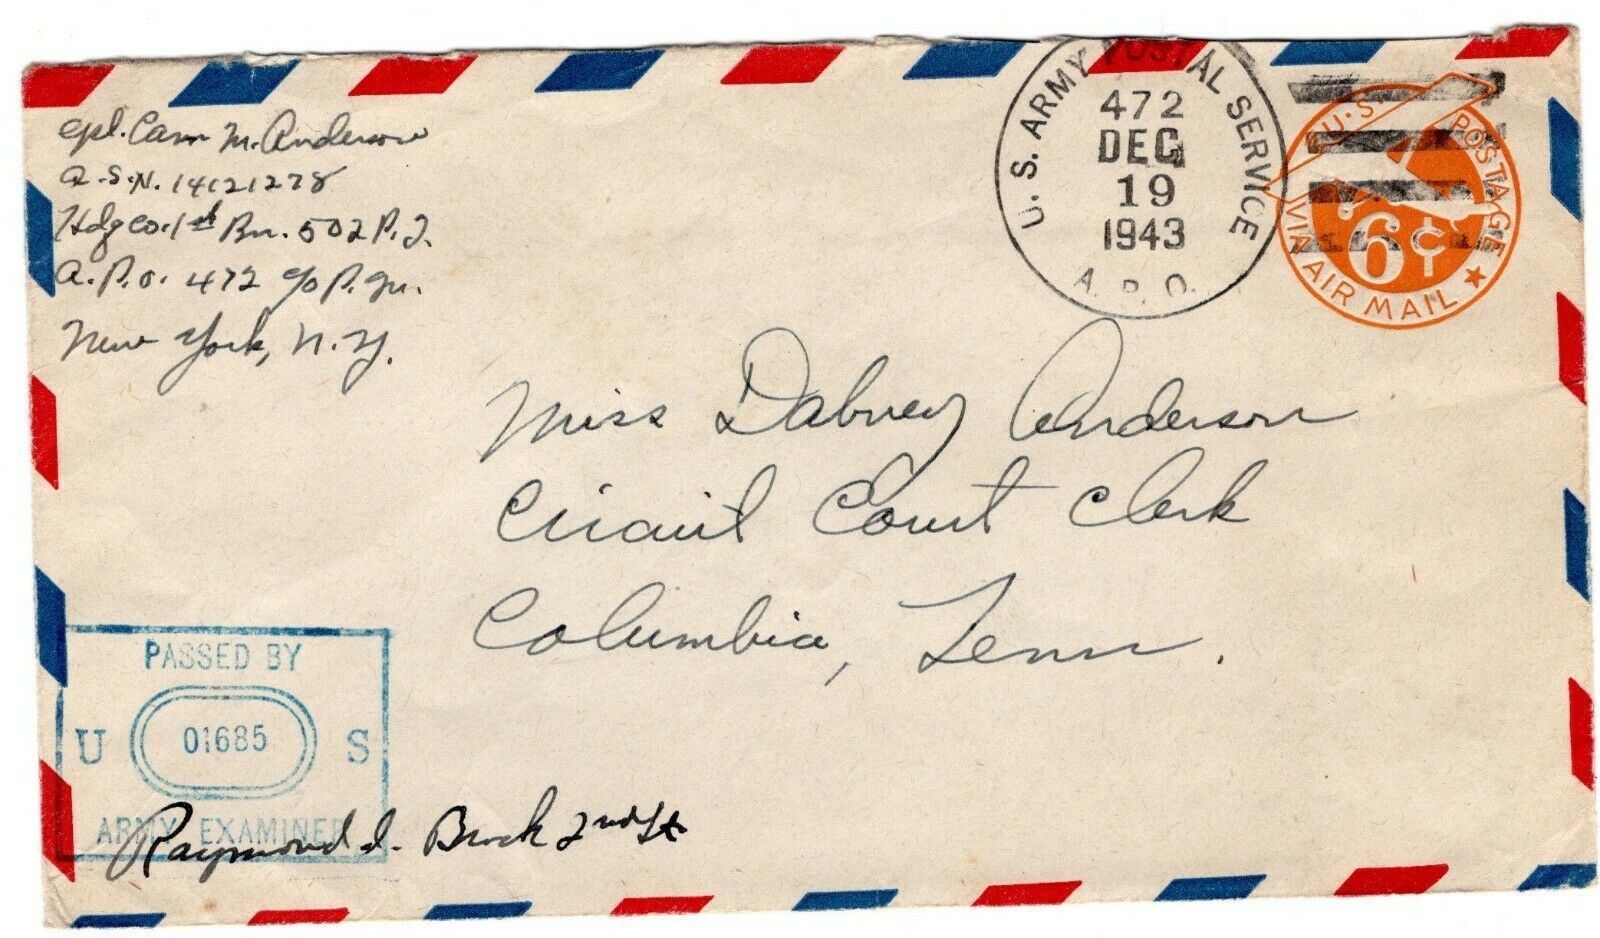 Cpl. Carr M. Anderson
A.S.N. 14121278
Hdq Co. 1st Bn. 502 P.I.
A.P.O. 472 c/o P.M.
New York, N.Y.
U. S. ARMY POSTAL SERVICE
472
DEC
19
1943
A. P. O.
U.S. POSTAGE
6¢
VIA AIR MAIL
Miss Dabney Anderson
Circuit Court Clerk
Columbia, Tenn.
PASSED BY
U 01685 S
ARMY EXAMINER
Raymond Brock 2nd Lt